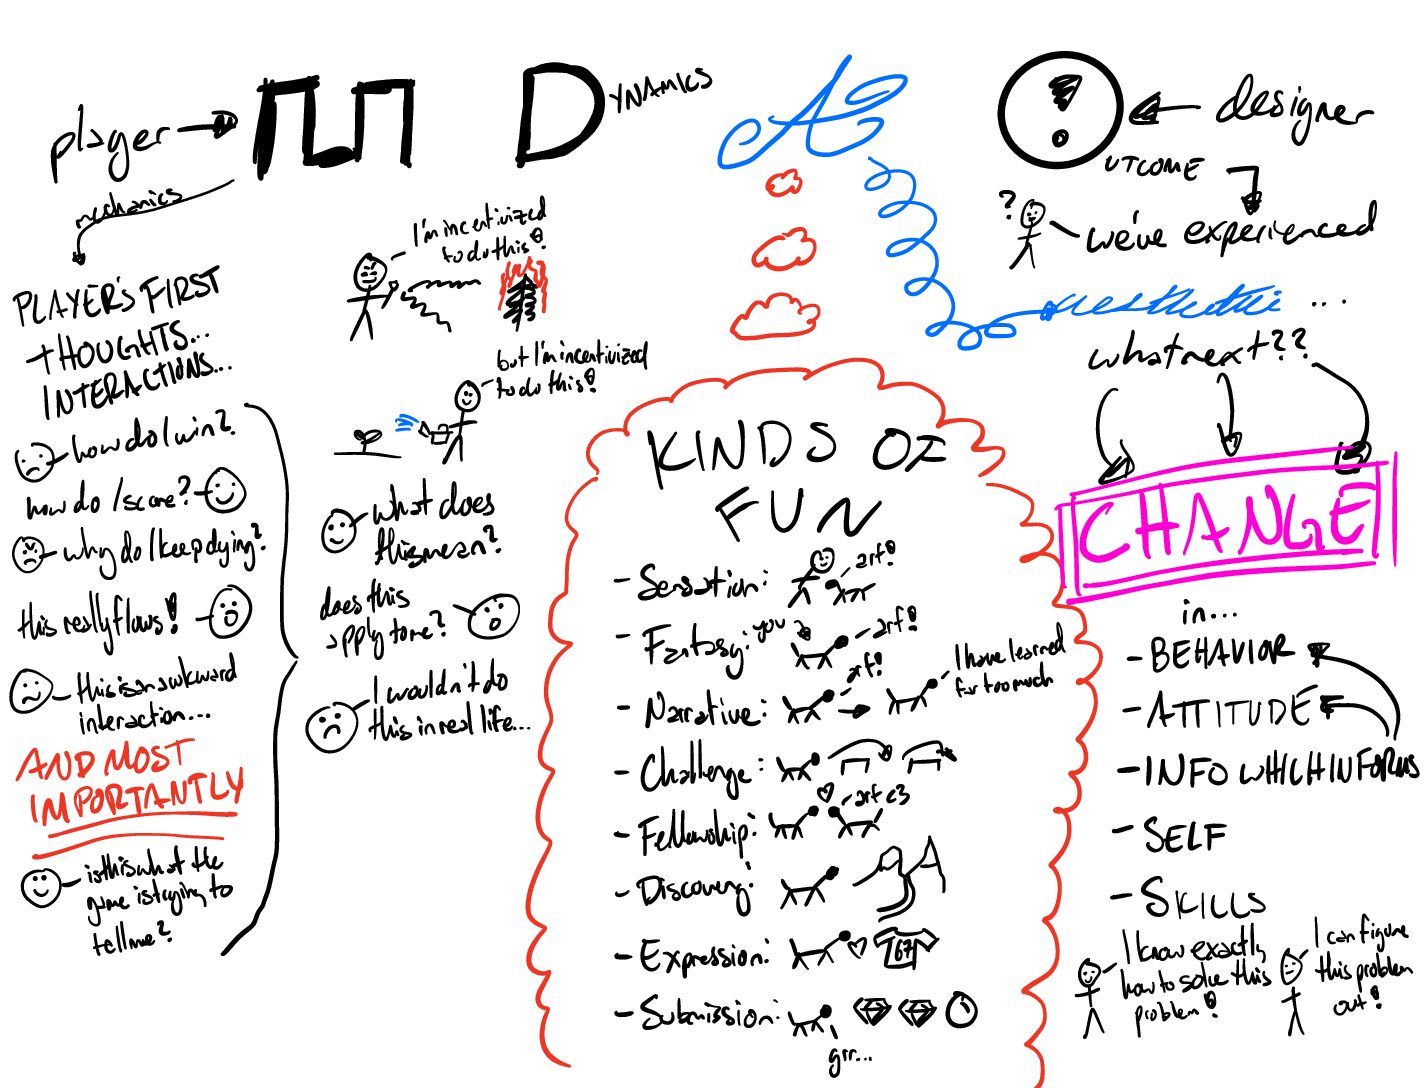 player
M
mechanics
DYNAMICS
A
OUTCOME
designer
PLAYER'S FIRST
THOUGHTS...
INTERACTIONS...
how do I win?
how do I score?
why do I keep dying?
this really flows!
this is an awkward
interaction...
AND MOST
IMPORTANTLY
is this what the
game is trying to
tell me?
I'm incentivized
to do this!
but I'm incentivized
to do this!
what does
this mean?
does this
apply to me?
I wouldn't do
this in real life...
KINDS OF
FUN
- Sensation:
arf!
- Fantasy:
you
arf!
- Narrative:
arf!
I have learned
far too much
- Challenge:
- Fellowship:
arf <3
- Discovery:
- Expression:
67
- Submission:
grr...
?
we've experienced
aesthetic ...
what next??
CHANGE
in...
- BEHAVIOR
- ATTITUDE
- INFO WHICH INFORMS
- SELF
- SKILLS
I know exactly
how to solve this
problem!
I can figure
this problem
out!